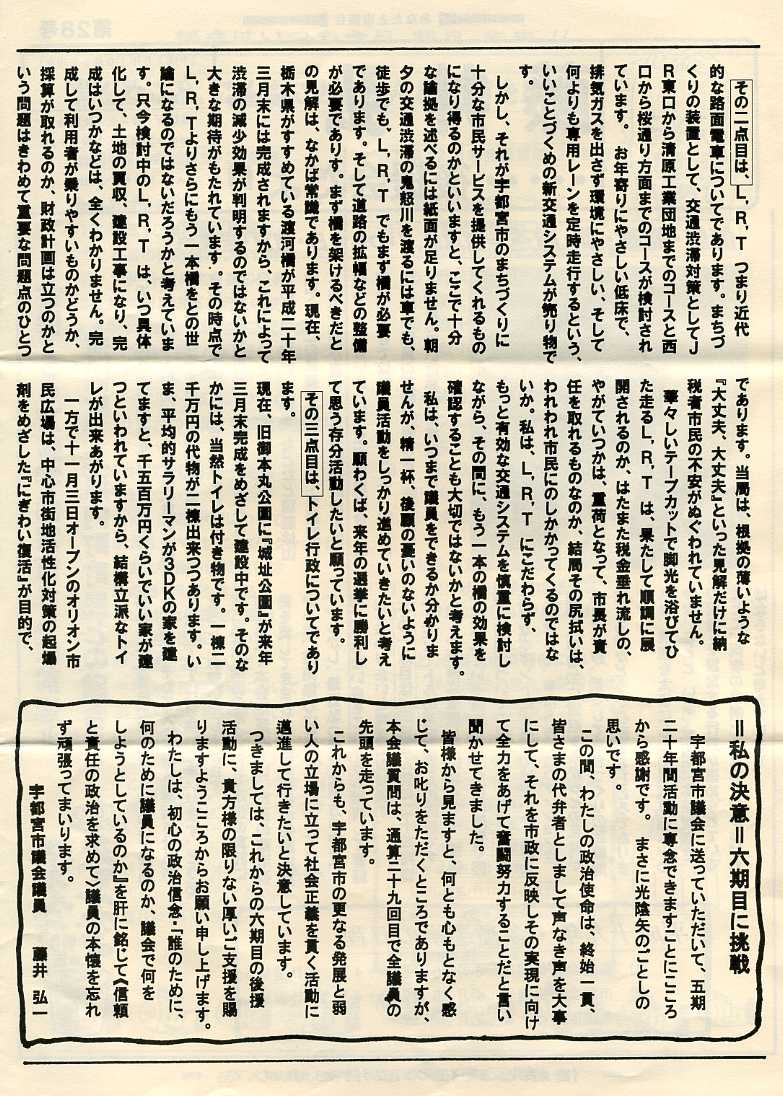 その二点目は、L,R,T つまり近代
的な路面電車についてであります。まちづ
くりの装置として、交通渋滞対策としてJ
R東口から清原工業団地までのコースと西
口から桜通り方面までのコースが検討され
ています。 お年寄りにやさしい低床で、
排気ガスを出さず環境にやさしい、そして
何よりも専用レーンを定時走行するという、
いいことづくめの新交通システムが売り物で
す。
しかし、それが宇都宮市のまちづくりに
十分な市民サービスを提供してくれるもの
になり得るのかといいますと、ここで十分
な論拠を述べるには紙面が足りません。朝
夕の交通渋滞の鬼怒川を渡るには車でも、
徒歩でも、L,R,T でもまず橋が必要
であります。そして道路の拡幅などの整備
が必要でありす。まず橋を架けるべきだと
の見解は、なかば常識であります。現在、
栃木県がすすめている渡河橋が平成二十年
三月末には完成されますから、これによって
渋滞の減少効果が判明するのではないかと
大きな期待がもたれています。その時点で
L,R,Tよりさらにもう一本橋をとの世
論になるのではないだろうかと考えていま
す。只今検討中のL,R,T は、いつ具体
化して、土地の買収、建設工事になり、完
成はいつかなどは、全くわかりません。完
成して利用者が乗りやすいものかどうか、
採算が取れるのか、財政計画は立つのかと
いう問題はきわめて重要な問題点のひとつ
であります。当局は、根拠の薄いような
『大丈夫、大丈夫』といった見解だけに納
税者市民の不安がぬぐわれていません。
華々しいテープカットで脚光を浴びてひ
た走るL,R,T は、果たして順調に展
開されるのか、はたまた税金垂れ流しの、
やがていつかは、重荷となって、市長が責
任を取れるものなのか、結局その尻拭いは、
われわれ市民にのしかかってくるのではな
いか。私は、L,R,T にこだわらず、
もっと有効な交通システムを慎重に検討し
ながら、その間に、もう一本の橋の効果を
確認することも大切ではないかと考えます。
私は、いつまで議員をできるか分かりま
せんが、精一杯、後顧の憂いのないように
議員活動をしっかり進めていきたいと考え
ています。願わくは、来年の選挙に勝利し
て思う存分活動したいと願っています。
その三点目は、トイレ行政についてであり
ます。
現在、旧御本丸公園に『城址公園』が来年
三月末完成をめざして建設中です。そのな
かには、当然トイレは付き物です。一棟二
千万円の代物が二棟出来つつあります。い
ま、平均的サラリーマンが3DKの家を建
てますと、千五百万円くらいでいい家が建
つといわれていますから、結構立派なトイ
レが出来あがります。
一方で十一月三日オープンのオリオン市
民広場は、中心市街地活性化対策の起爆
剤をめざした『にぎわい復活』が目的で、
=私の決意=六期目に挑戦
宇都宮市議会に送っていただいて、五期
二十年間活動に専念できますことにこころ
から感謝です。 まさに光陰矢のごとしの
思いです。
この間、わたしの政治使命は、終始一貫、
皆さまの代弁者としまして声なき声を大事
にして、それを市政に反映しその実現に向け
て全力をあげて奮闘努力することだと言い
聞かせてきました。
皆様から見ますと、何とも心もとなく感
じて、お叱りをただくところでありますが、
本会議質問は、通算二十九回目で全議員の
先頭を走っています。
これからも、宇都宮市の更なる発展と弱
い人の立場に立って社会正義を貫く活動に
邁進して行きたいと決意しています。
つきましては、これからの六期目の後援
活動に、貴方様の限りない厚いご支援を賜
りますようこころからお願い申し上げます。
わたしは、初心の政治信念・『誰のために、
何のために議員になるのか、議会で何を
しようとしているのか』を肝に銘じて《信頼
と責任の政治を求めて》議員の本懐を忘れ
ず頑張ってまいります。
宇都宮市議会議員 藤井 弘一